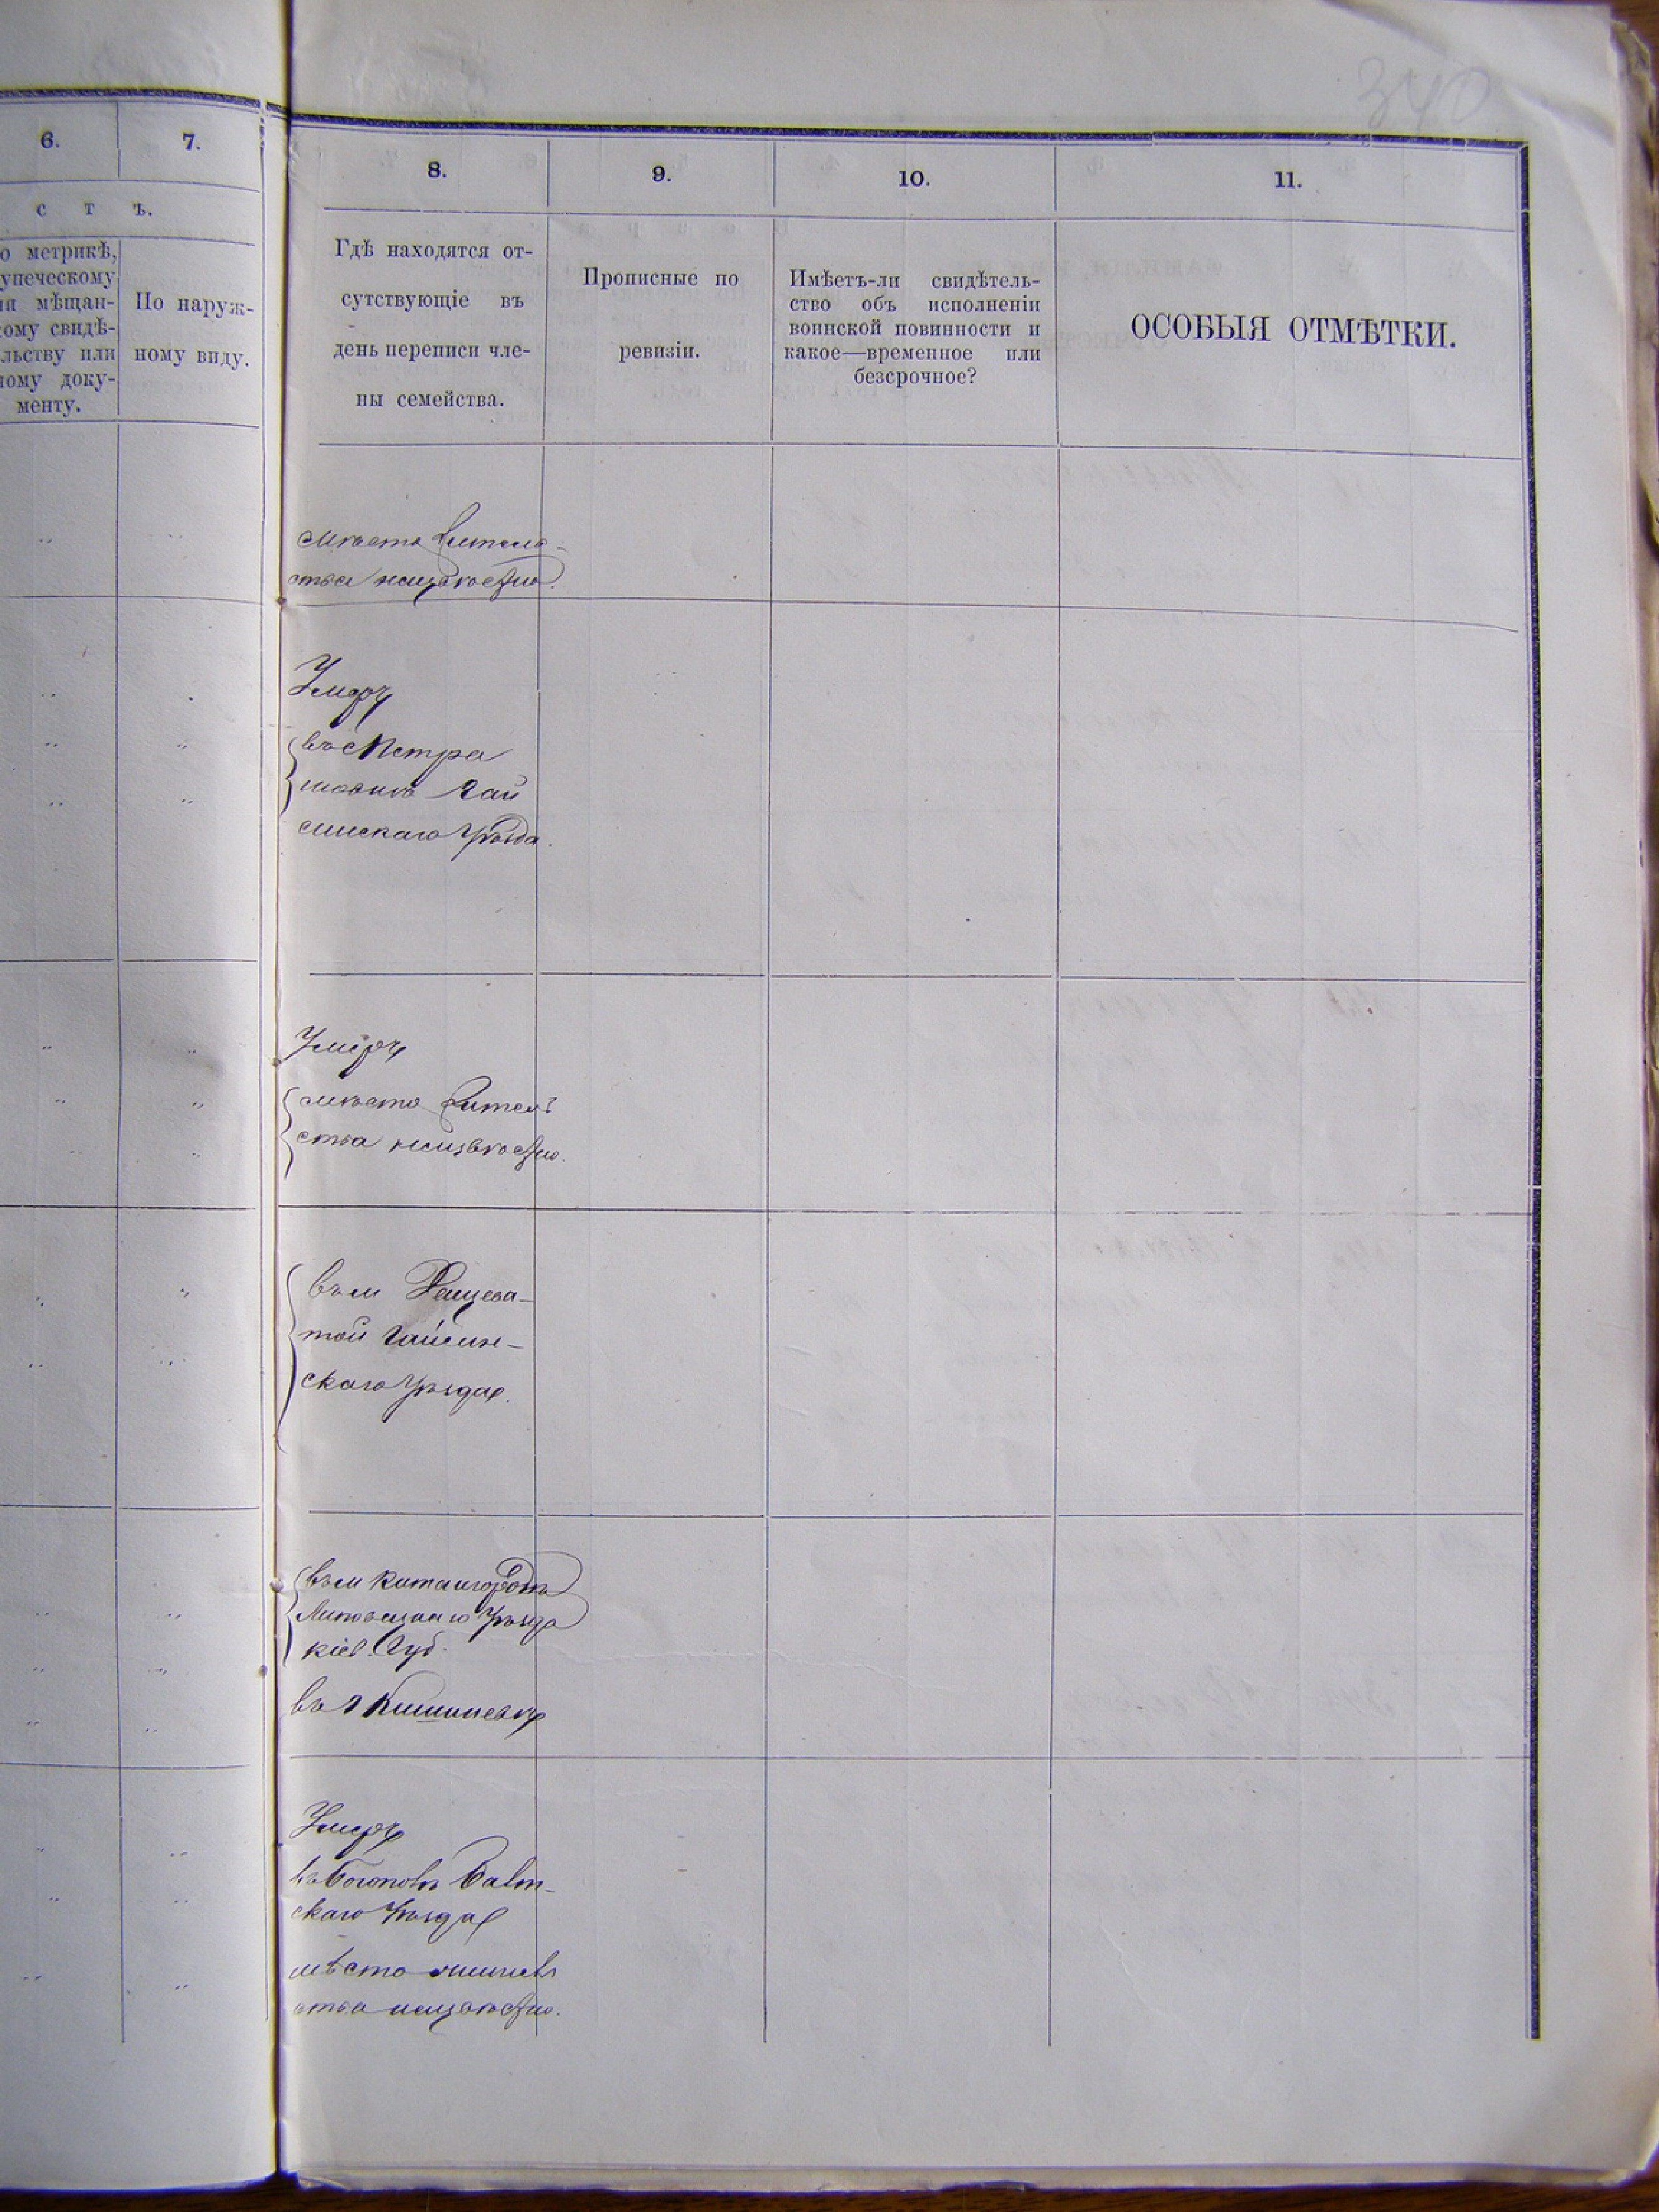 340
6.
7.
с т ъ.
о метрикѣ,
упеческому
ли мѣщан-
кому свидѣ-
льству или
ному доку-
менту.
По наруж-
ному виду.
8.
9.
10.
11.
Гдѣ находятся от-
сутствующіе въ
день переписи чле-
ны семейства.
Прописные по
ревизіи.
Имѣетъ-ли свидѣтель-
ство объ исполненіи
воинской повинности и
какое—временное или
безсрочное?
ОСОБЫЯ ОТМѢТКИ.
мѣсто жителъ-
ства неизвѣстно.
Умеръ
въ с Петра
шовкѣ Гай
синскаго Уѣзда.
Умеръ
мѣсто жителъ
ства неизвѣстно.
въ м
той Гайсин-
скаго Уѣзда.
въ м Китайгородѣ
Липовецкаго Уѣзда
Кіев. Губ.
въ г Кишиневѣ
Умеръ
въ Балт-
скаго Уѣзда
мѣсто
ства неизвѣстно.